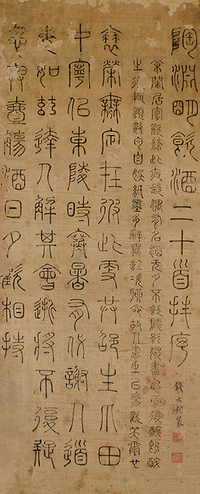 陶淵明飲酒二十首并序
余閒居寡歡兼比夜已長偶有名酒無夕不飲顧影獨盡忽焉復醉既醉
之後輒題數句自娛紙墨遂多辭無詮次聊命故人書之以為歡笑爾
衰榮無定在彼此更共之邵生瓜田
中寧似東陵時寒暑有代謝人道
每如茲達人解其會逝將不復疑
忽與壹觴酒日夕歡相持
錢大昕篆